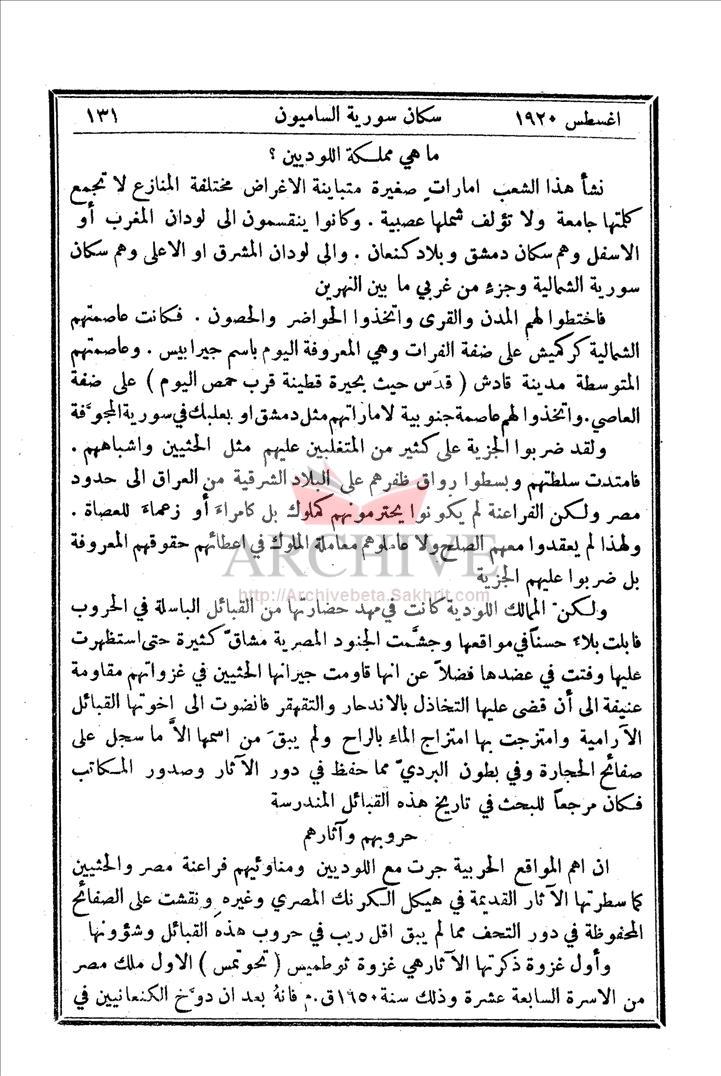 اغسطس ١٩٢٠ سكان سورية الساميون ١٣١
ما هي مملكة اللوديين ؟
نشأ هذا الشعب امارات صغيرة متباينة الاغراض مختلفة المنازع لا تجمع
كلمتها جامعة ولا تؤلف شملها عصبية . وكانوا ينقسمون الى لودان المغرب أو
الاسفل وهم سكان دمشق وبلاد كنعان . والى لودان المشرق او الاعلى وهم سكان
سورية الشمالية وجزءٍ من غربي ما بين النهرين
فاختطوا لهم المدن والقرى واتخذوا الحواضر والحصون . فكانت عاصمتهم
الشمالية كركميش على ضفة الفرات وهي المعروفة اليوم باسم جيرابيس . وعاصمتهم
المتوسطة مدينة قادش ( قدَس حيث بحيرة قطينة قرب حمص اليوم ) على ضفة
العاصي. واتخذوا لهم عاصمة جنوبية لاماراتهم مثل دمشق او بعلبك في سورية المجوَّفة
ولقد ضربوا الجزية على كثير من المتغلبين عليهم مثل الحثيين واشباههم .
فامتدت سلطتهم وبسطوا رواق ظفرهم على البلاد الشرقية من العراق الى حدود
مصر ولكن الفراعنة لم يكونوا يحترمونهم كملوك بل كامراءَ أو زعماءَ للعصاة .
ولهذا لم يعقدوا معهم الصلح ولا عاملوهم معاملة الملوك في اعطائهم حقوقهم المعروفة
بل ضربوا عليهم الجزية
ARCHIVE
http://Archivebeta.Sakhrit.com
ولكنَّ الممالك اللودية كانت في مهد حضارتها من القبائل الباسلة في الحروب
فابلت بلاءً حسناً في مواقعها وجشَّمت الجنود المصرية مشاقّ كثيرة حتى استظهرت
عليها وفتت في عضدها فضلاً عن انها قاومت جيرانها الحثيين في غزواتهم مقاومة
عنيفة الى أن قضى عليها التخاذل بالاندحار والتقهقر فانضوت الى اخوتها القبائل
الآرامية وامتزجت بها امتزاج الماءِ بالراح ولم يبقَ من اسمها الاَّ ما سجل على
صفائح الحجارة وفي بطون البرديّ مما حفظ في دور الآثار وصدور المكاتب
فكان مرجعاً للبحث في تاريخ هذه القبائل المندرسة
حروبهم وآثارهم
ان اهم المواقع الحربية جرت مع اللوديين ومناوئيهم فراعنة مصر والحثيين
كما سطرتها الآثار القديمة في هيكل الكرنك المصري وغيره ونقشت على الصفائح
المحفوظة في دور التحف مما لم يبق اقل ريب في حروب هذه القبائل وشؤونها
وأول غزوة ذكرتها الآثار هي غزوة ثوطميس ( تحوتمس ) الاول ملك مصر
من الاسرة السابعة عشرة وذلك سنة ١٦٥٠ ق.م فانهُ بعد ان دوَّخ الكنعانيين في